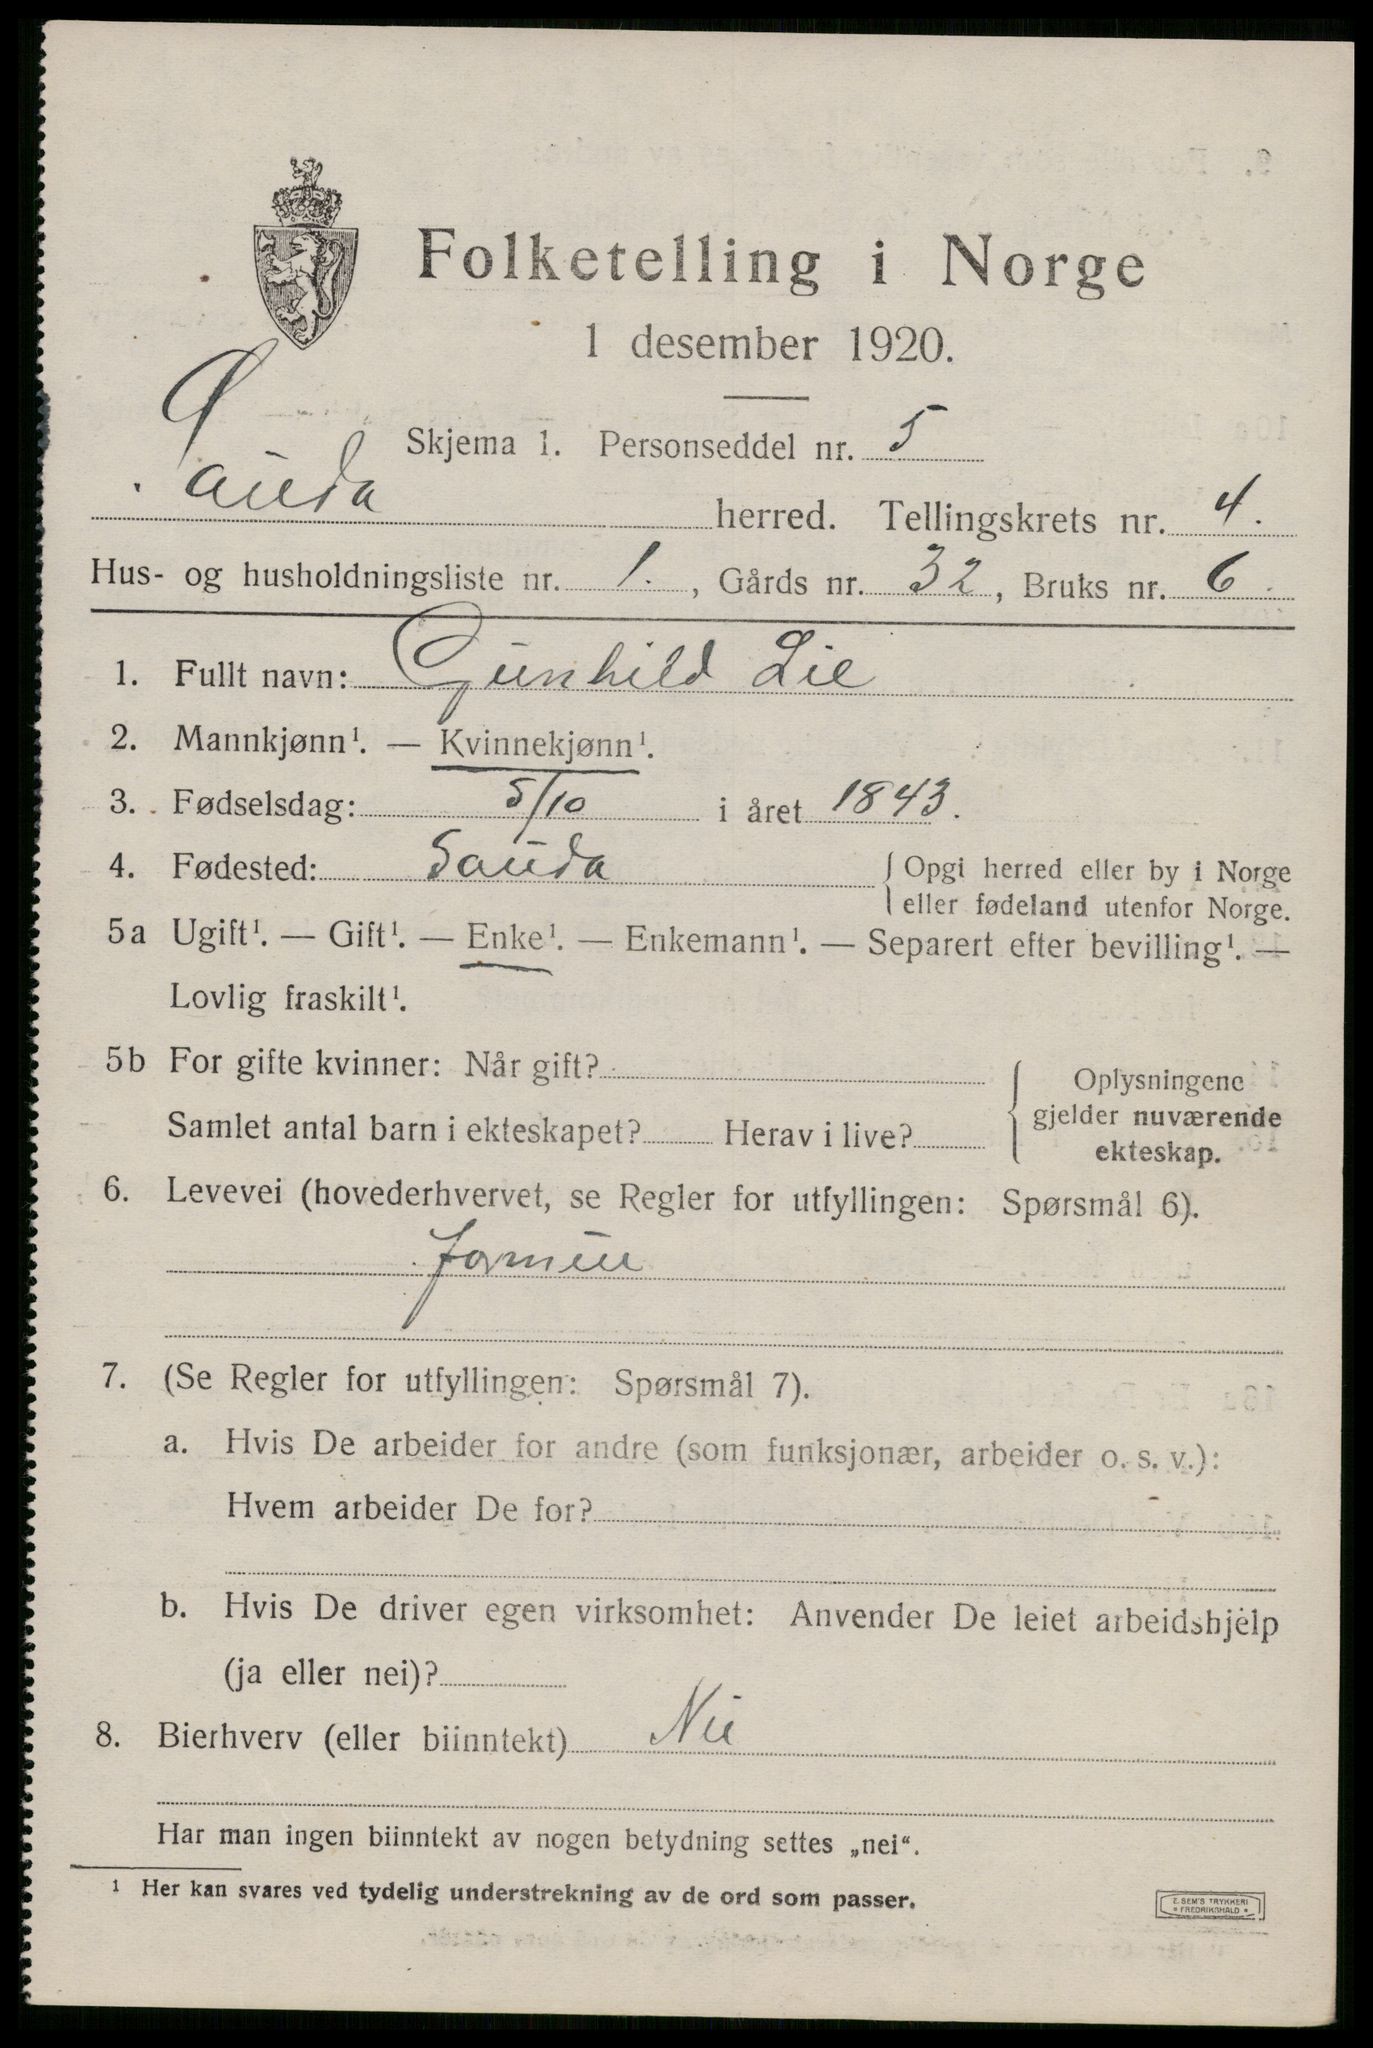 Folketelling i Norge
1 desember 1920.
Skjema 1. Personseddel nr. 5
Sauda herred. Tellingskrets nr. 4.
Hus- og husholdningsliste nr. 1., Gårds nr. 32, Bruks nr. 6
1. Fullt navn: Gunhild Lie
2. Mannkjønn¹. — Kvinnekjønn¹.
3. Fødselsdag: 5/10 i året 1843.
4. Fødested: Sauda { Opgi herred eller by i Norge
eller fødeland utenfor Norge.
5a Ugift¹. — Gift¹. — Enke¹. — Enkemann¹. — Separert efter bevilling¹. —
Lovlig fraskilt¹.
5b For gifte kvinner: Når gift?
Samlet antal barn i ekteskapet? Herav i live?
Oplysningene
gjelder nuværende
ekteskap.
6. Levevei (hovederhvervet, se Regler for utfyllingen: Spørsmål 6).
7. (Se Regler for utfyllingen: Spørsmål 7).
a. Hvis De arbeider for andre (som funksjonær, arbeider o. s. v.):
Hvem arbeider De for?
b. Hvis De driver egen virksomhet: Anvender De leiet arbeidshjelp
(ja eller nei)?
8. Bierhverv (eller biinntekt) Nei
Har man ingen biinntekt av nogen betydning settes „nei“.
¹ Her kan svares ved tydelig understrekning av de ord som passer.
E. SEM'S TRYKKERI
* FREDRIKSHALD *